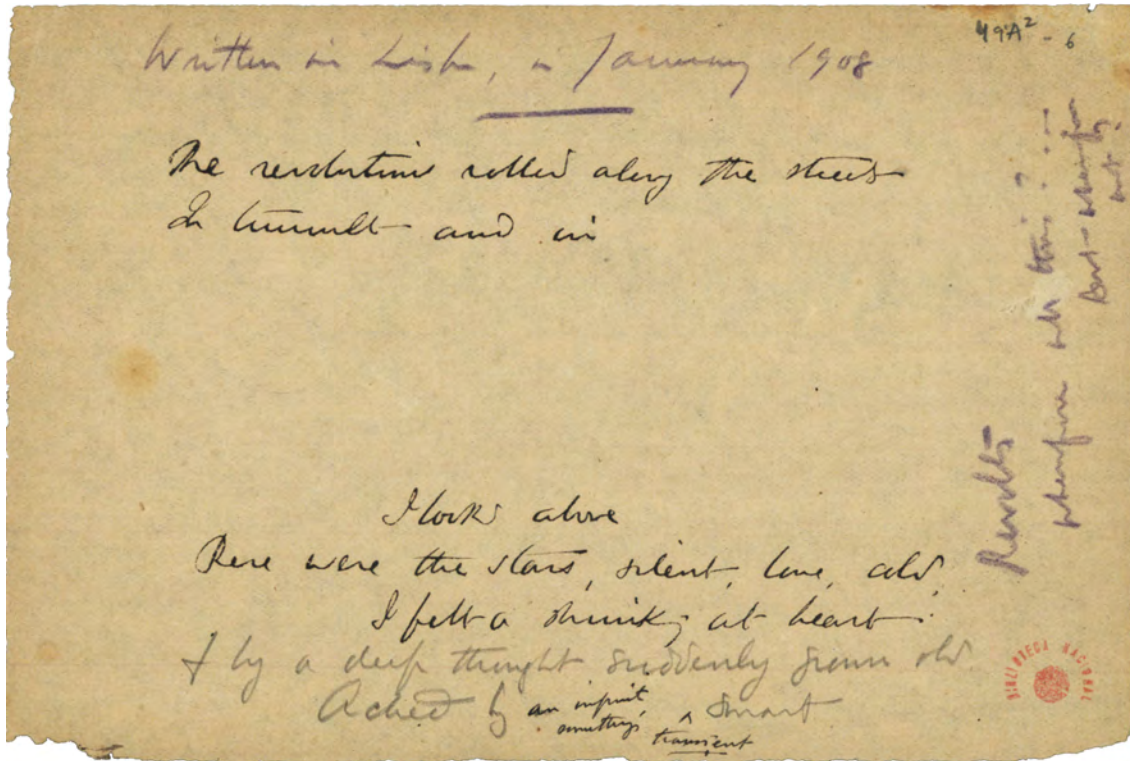 49A² - 6
Written in Lisbon, in January 1908
The revolutions rolled along the streets
In tumult and in
I looked above
There were the stars, silent, lone, old,
I felt a shrinking at heart.
I by a deep thought suddenly grown old
Ached by an infinit something's transient smart
Revolts
wherefore all this? —
but wherefore
not?
BIBLIOTECA NACIONAL